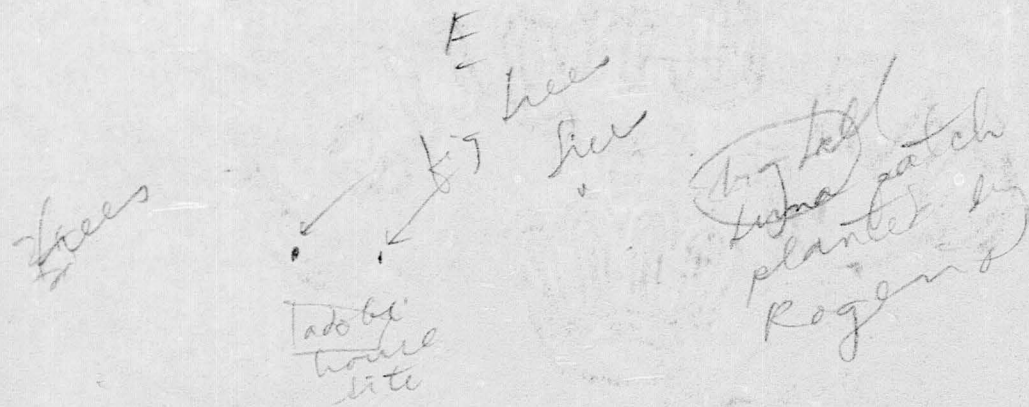 E
fig trees
trees
adobe
house
site
big tall
tuna patch
planted by
Rogerio